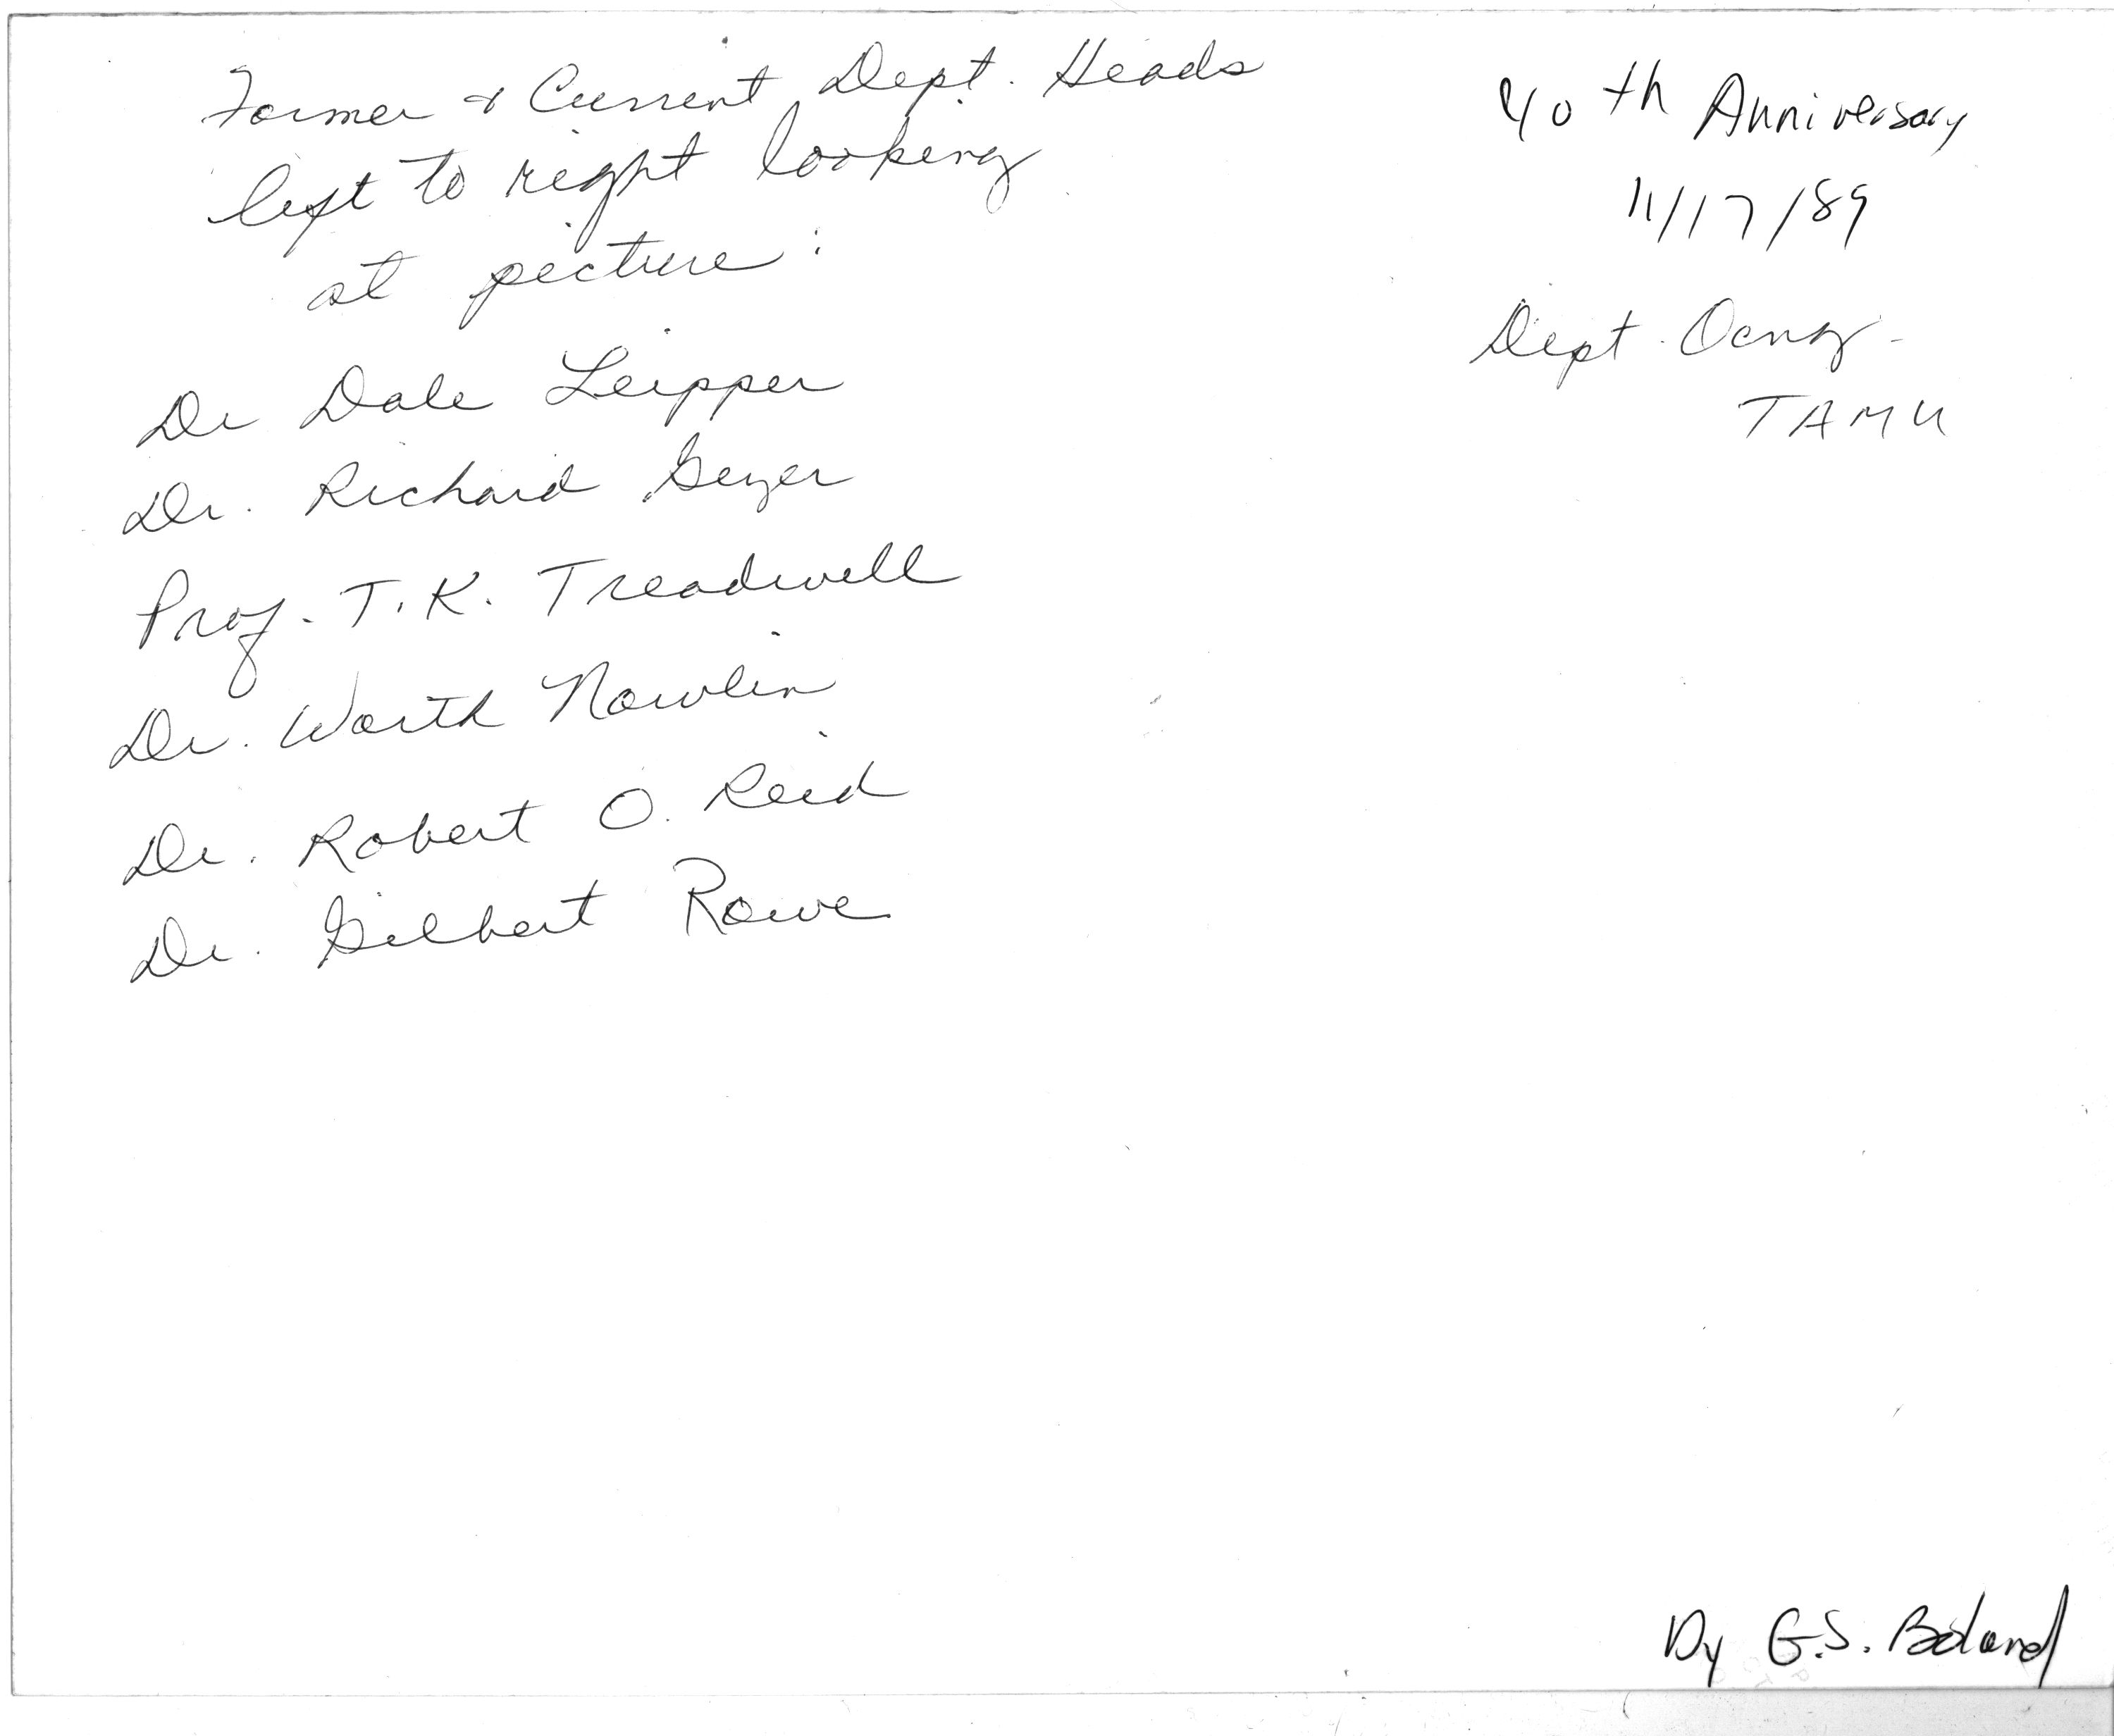 Former & Current Dept. Heads
left to right looking
at picture:
Dr Dale Leipper
Dr. Richard Geyer
Prof. T. K. Treadwell
Dr. Worth Nowlin
Dr. Robert O. Reid
Dr. Gilbert Rowe
40th Anniversary
11/17/89
Dept. Ocng.
TAMU
By G.S. Boland